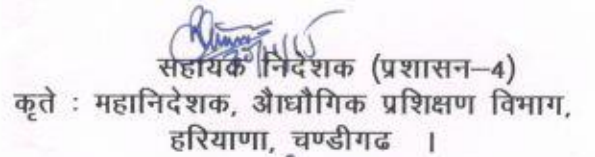 सहायक निदेशक (प्रशासन–4)
कृते : महानिदेशक, औाधौगिक प्रशिक्षण विभाग,
हरियाणा, चण्डीगढ ।